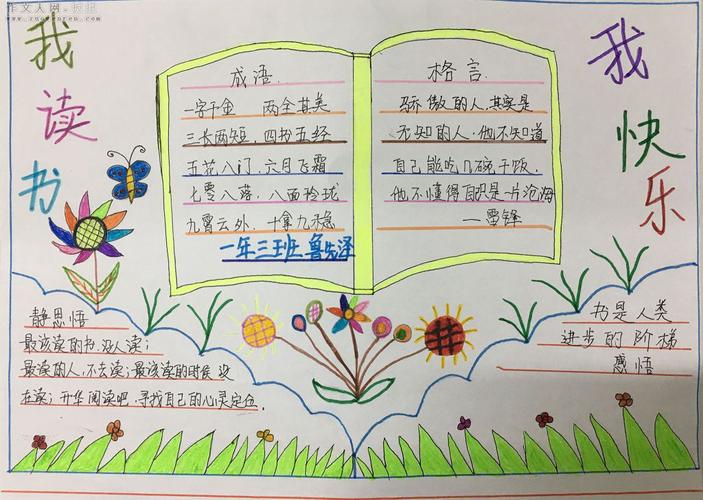 作文人网·板报
www.zuowenren.com
我读书
我快乐
成语
一字千金 两全其美
三长两短,四书五经
五花八门,六月飞霜
七零八落,八面玲珑
九霄云外,十拿九稳
一年三班鲁先泽
格言
骄傲的人,其实是
无知的人,他不知道
自己能吃几碗干饭,
他不懂得自己是一片沧海
—雷锋
静思悟
最该读的书没人读;
最该读的人,不去读;最该读的时候没
在读;升华阅读吧,寻找自己的心灵定位。
书是人类
进步的阶梯
感悟